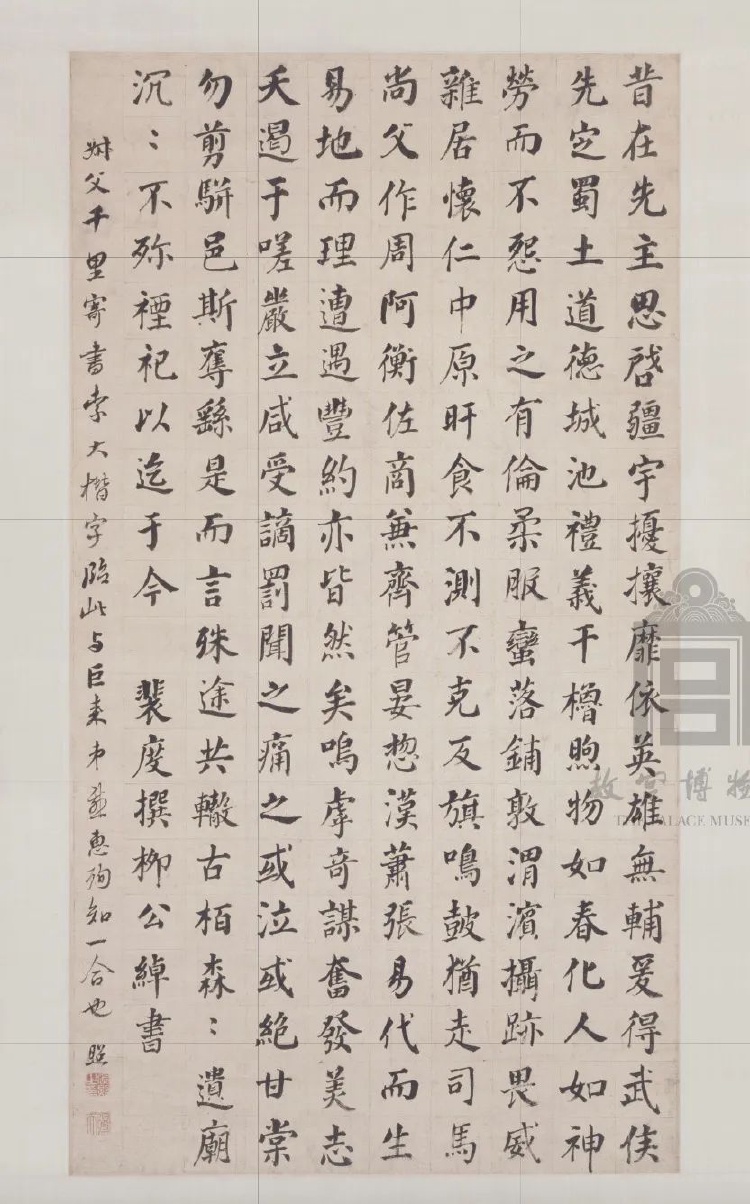 昔在先主思啓疆宇擾攘靡依英雄無輔爰得武侯
先定蜀土道德城池禮義干櫓煦物如春化人如神
勞而不怨用之有倫柔服蠻落鋪敦渭濱攝跡畏威
雜居懷仁中原旰食不測不克反旗鳴鼓猶走司馬
尚父作周阿衡佐商兼齊管晏揔漢蕭張易代而生
易地而理遭遇豐約亦皆然矣嗚虖奇謀奮發美志
夭遏于嗟嚴立咸受謫罰聞之痛之或泣或絶甘棠
勿剪駢邑斯奪繇是而言殊途共轍古柏森〻遺廟
沉〻不殄禋祀以迄于今 裴度撰柳公綽書
叔父千里寄書索大楷字臨此与巨來
知一合也 照
故宮博物
THE PALACE MUSE